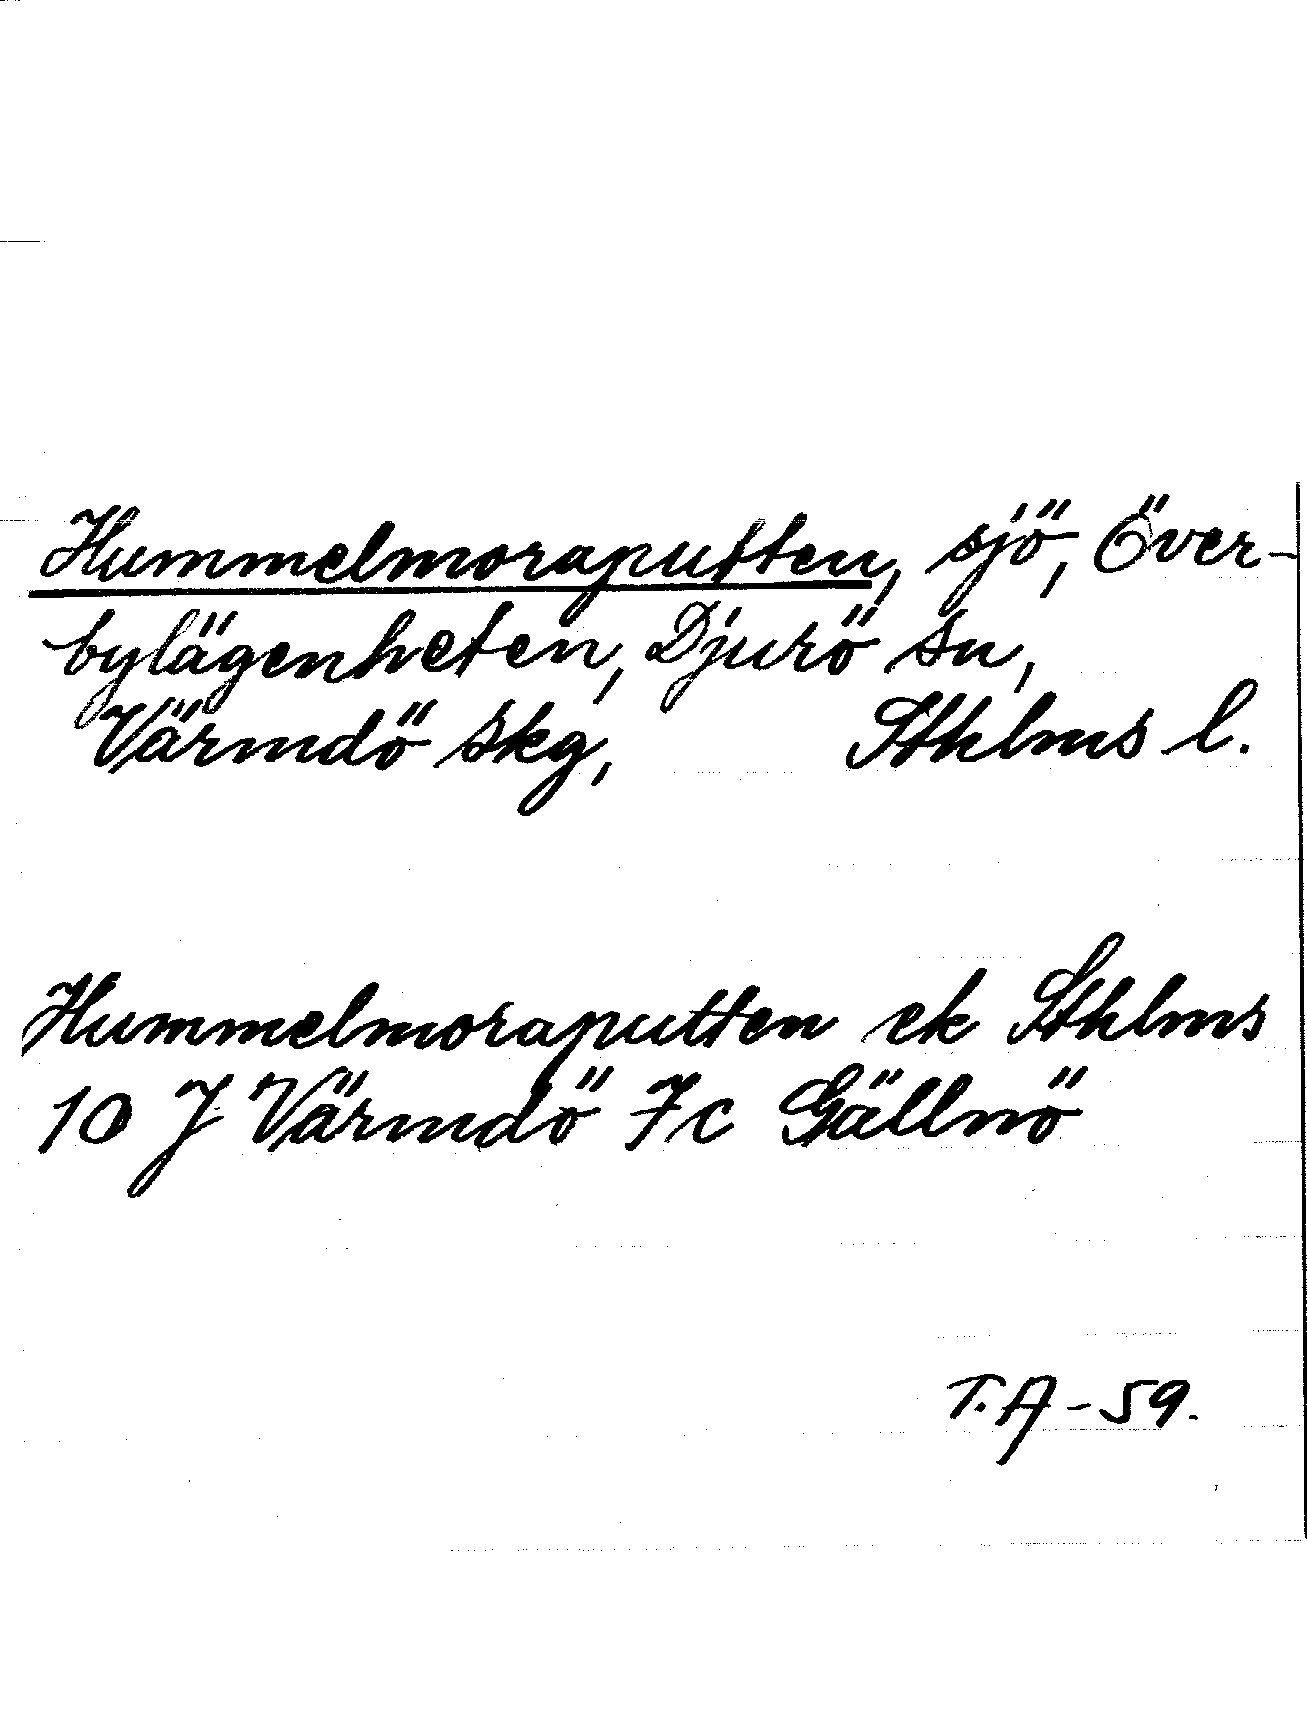 Hummelmoraputten, sjö, Över-
bylägenheten, Djurö sn,
Värmdö skg, Sthlms l.
Hummelmoraputten ek Sthlms
10 J Värmdö 7c Gällnö
T.A-59.